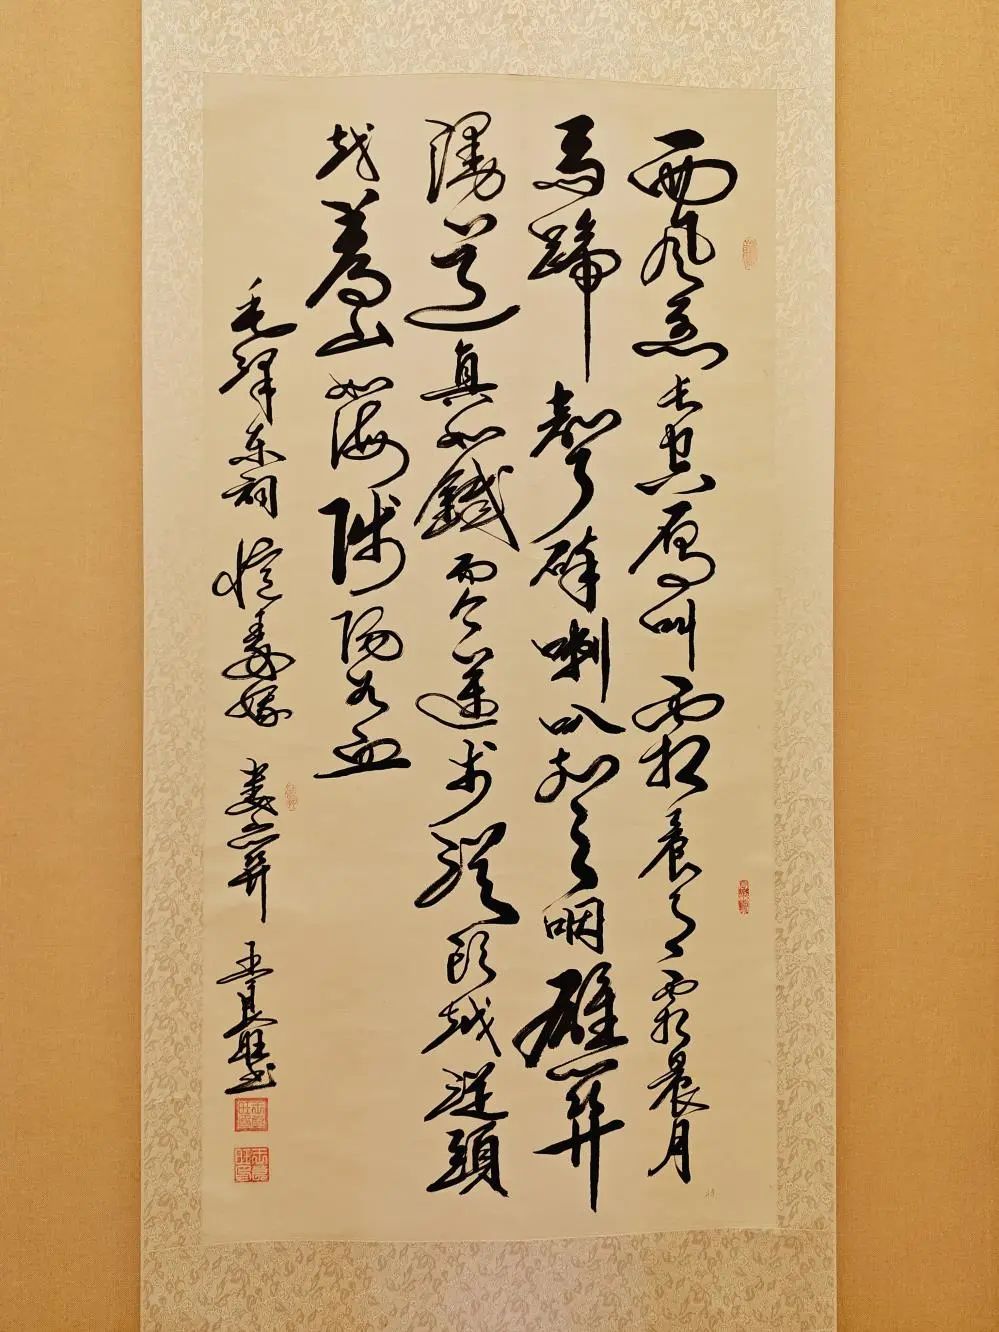 西風烈长空雁叫霜晨月霜晨月
馬蹄聲碎喇叭聲咽雄關
漫道真如鐵而今邁步從頭越從頭
越蒼山如海殘陽如血
毛澤东詞憶秦娥 婁山關 王良旺书